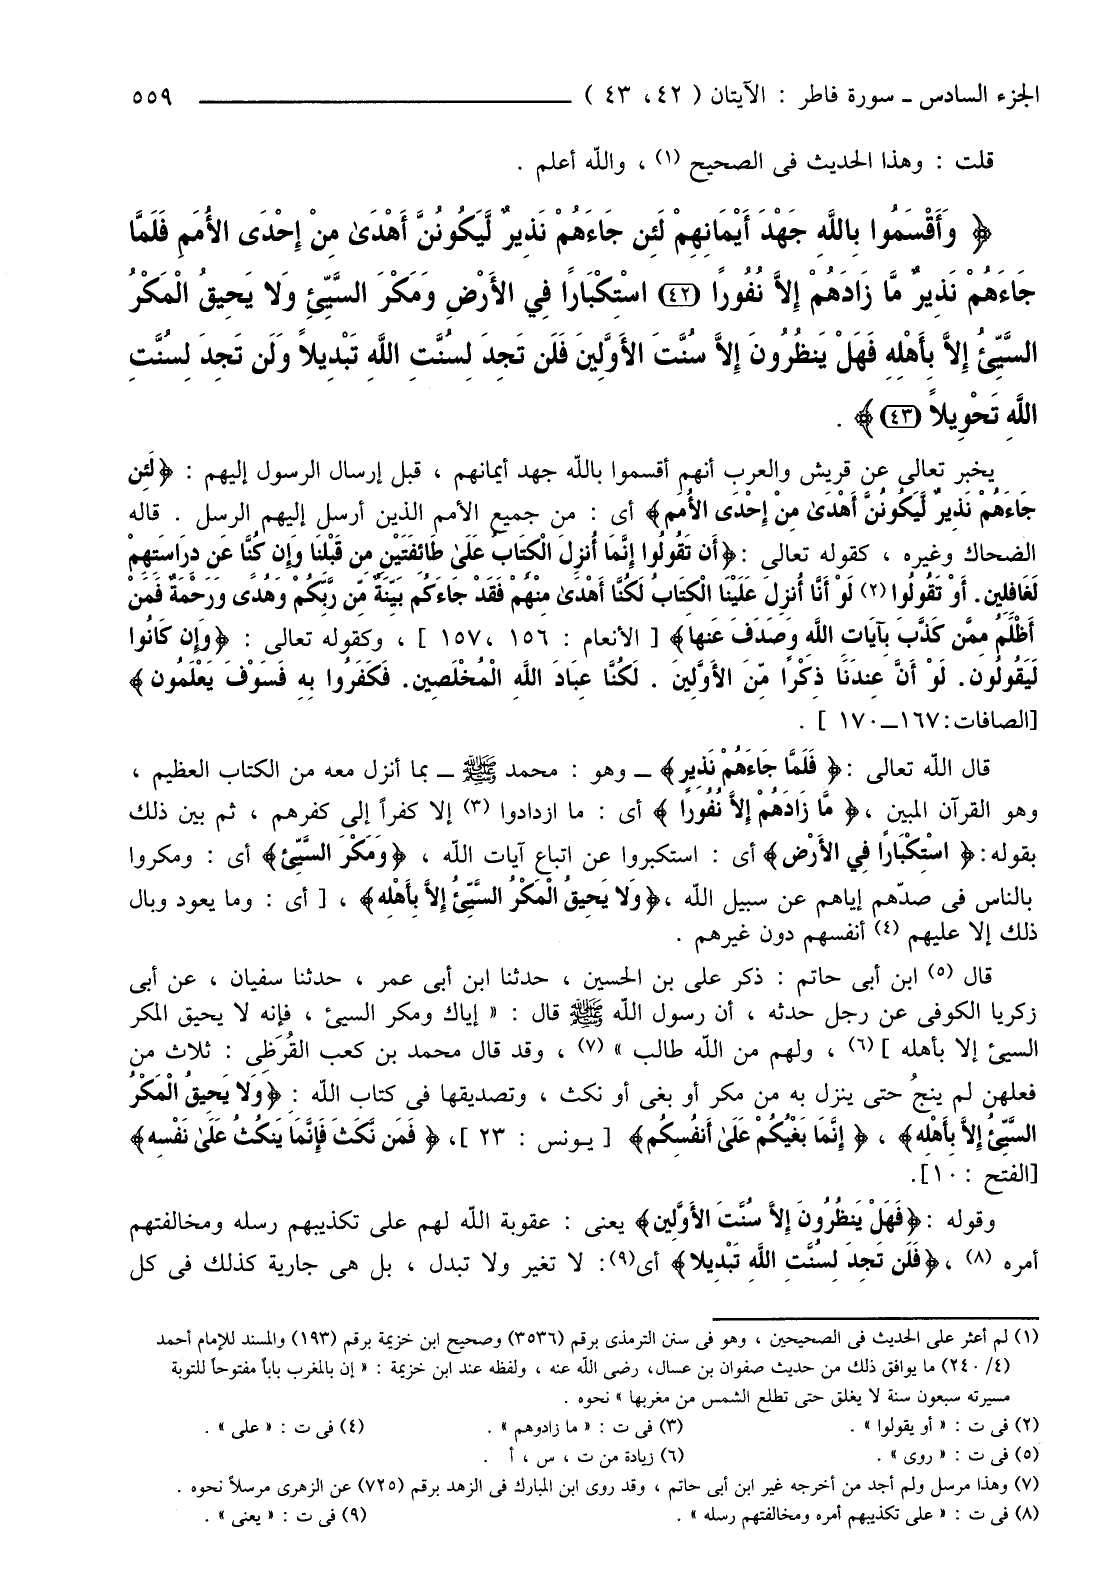 الجزء السادس ـ سورة فاطر : الآيتان ( ٤٢ ، ٤٣ ) ٥٥٩
قلت : وهذا الحديث فى الصحيح (١) ، والله أعلم .
﴿ وَأَقْسَمُوا بِاللَّهِ جَهْدَ أَيْمَانِهِمْ لَئِن جَاءَهُمْ نَذِيرٌ لَّيَكُونُنَّ أَهْدَىٰ مِنْ إِحْدَى الأُمَمِ فَلَمَّا
جَاءَهُمْ نَذِيرٌ مَّا زَادَهُمْ إِلاَّ نُفُورًا (٤٢) اسْتِكْبَارًا فِي الأَرْضِ وَمَكْرَ السَّيِّئِ وَلا يَحِيقُ الْمَكْرُ
السَّيِّئُ إِلاَّ بِأَهْلِهِ فَهَلْ يَنظُرُونَ إِلاَّ سُنَّتَ الأَوَّلِينَ فَلَن تَجِدَ لِسُنَّتِ اللَّهِ تَبْدِيلاً وَلَن تَجِدَ لِسُنَّتِ
اللَّهِ تَحْوِيلاً (٤٣) ﴾ .
يخبر تعالى عن قريش والعرب أنهم أقسموا بالله جهد أيمانهم ، قبل إرسال الرسول إليهم : ﴿ لَئِن
جَاءَهُمْ نَذِيرٌ لَّيَكُونُنَّ أَهْدَىٰ مِنْ إِحْدَى الأُمَمِ ﴾ أى : من جميع الأمم الذين أرسل إليهم الرسل . قاله
الضحاك وغيره ، كقوله تعالى : ﴿ أَن تَقُولُوا إِنَّمَا أُنزِلَ الْكِتَابُ عَلَىٰ طَائِفَتَيْنِ مِن قَبْلِنَا وَإِن كُنَّا عَن دِرَاسَتِهِمْ
لَغَافِلِينَ. أَوْ تَقُولُوا (٢) لَوْ أَنَّا أُنزِلَ عَلَيْنَا الْكِتَابُ لَكُنَّا أَهْدَىٰ مِنْهُمْ فَقَدْ جَاءَكُم بَيِّنَةٌ مِّن رَّبِّكُمْ وَهُدًى وَرَحْمَةٌ فَمَنْ
أَظْلَمُ مِمَّن كَذَّبَ بِآيَاتِ اللَّهِ وَصَدَفَ عَنْهَا ﴾ [ الأنعام : ١٥٦ ، ١٥٧ ] ، وكقوله تعالى : ﴿ وَإِن كَانُوا
لَيَقُولُونَ. لَوْ أَنَّ عِندَنَا ذِكْرًا مِّنَ الأَوَّلِينَ . لَكُنَّا عِبَادَ اللَّهِ الْمُخْلَصِينَ. فَكَفَرُوا بِهِ فَسَوْفَ يَعْلَمُونَ ﴾
[الصافات: ١٦٧ ــ ١٧٠ ] .
قال الله تعالى : ﴿ فَلَمَّا جَاءَهُمْ نَذِيرٌ ﴾ ــ وهو : محمد ﷺ ــ بما أنزل معه من الكتاب العظيم ،
وهو القرآن المبين ، ﴿ مَّا زَادَهُمْ إِلاَّ نُفُورًا ﴾ أى : ما ازدادوا (٣) إلا كفراً إلى كفرهم ، ثم بين ذلك
بقوله: ﴿ اسْتِكْبَارًا فِي الأَرْضِ ﴾ أى : استكبروا عن اتباع آيات الله ، ﴿ وَمَكْرَ السَّيِّئِ ﴾ أى : ومكروا
بالناس فى صدّهم إياهم عن سبيل الله ، ﴿ وَلا يَحِيقُ الْمَكْرُ السَّيِّئُ إِلاَّ بِأَهْلِهِ ﴾ ، [ أى : وما يعود وبال
ذلك إلا عليهم (٤) أنفسهم دون غيرهم .
قال (٥) ابن أبى حاتم : ذكر على بن الحسين ، حدثنا ابن أبى عمر ، حدثنا سفيان ، عن أبى
زكريا الكوفى عن رجل حدثه ، أن رسول الله ﷺ قال : « إياك ومكر السيئ ، فإنه لا يحيق المكر
السيئ إلا بأهله ] (٦) ، ولهم من الله طالب » (٧) ، وقد قال محمد بن كعب القُرَظى : ثلاث من
فعلهن لم ينجُ حتى ينزل به من مكر أو بغى أو نكث ، وتصديقها فى كتاب الله : ﴿ وَلا يَحِيقُ الْمَكْرُ
السَّيِّئُ إِلاَّ بِأَهْلِهِ ﴾ ، ﴿ إِنَّمَا بَغْيُكُمْ عَلَىٰ أَنفُسِكُم ﴾ [ يونس : ٢٣ ]، ﴿ فَمَن نَّكَثَ فَإِنَّمَا يَنكُثُ عَلَىٰ نَفْسِهِ ﴾
[الفتح : ١٠].
وقوله : ﴿ فَهَلْ يَنظُرُونَ إِلاَّ سُنَّتَ الأَوَّلِينَ ﴾ يعنى : عقوبة الله لهم على تكذيبهم رسله ومخالفتهم
أمره (٨) ، ﴿ فَلَن تَجِدَ لِسُنَّتِ اللَّهِ تَبْدِيلا ﴾ أى (٩): لا تغير ولا تبدل ، بل هى جارية كذلك فى كل
(١) لم أعثر على الحديث فى الصحيحين ، وهو فى سنن الترمذى برقم (٣٥٣٦) وصحيح ابن خزيمة برقم (١٩٣) والمسند للإمام أحمد
(٤/ ٢٤٠) ما يوافق ذلك من حديث صفوان بن عسال، رضى الله عنه ، ولفظه عند ابن خزيمة : « إن بالمغرب باباً مفتوحاً للتوبة
مسيرته سبعون سنة لا يغلق حتى تطلع الشمس من مغربها » نحوه .
(٢) فى ت : « أو يقولوا » . (٣) فى ت : « ما زادوهم » . (٤) فى ت : « على » .
(٥) فى ت : « روى » . (٦) زيادة من ت ، س ، أ .
(٧) وهذا مرسل ولم أجد من أخرجه غير ابن أبى حاتم ، وقد روى ابن المبارك فى الزهد برقم (٧٢٥) عن الزهرى مرسلاً نحوه .
(٨) فى ت : « على تكذيبهم أمره ومخالفتهم رسله » . (٩) فى ت : « يعنى » .